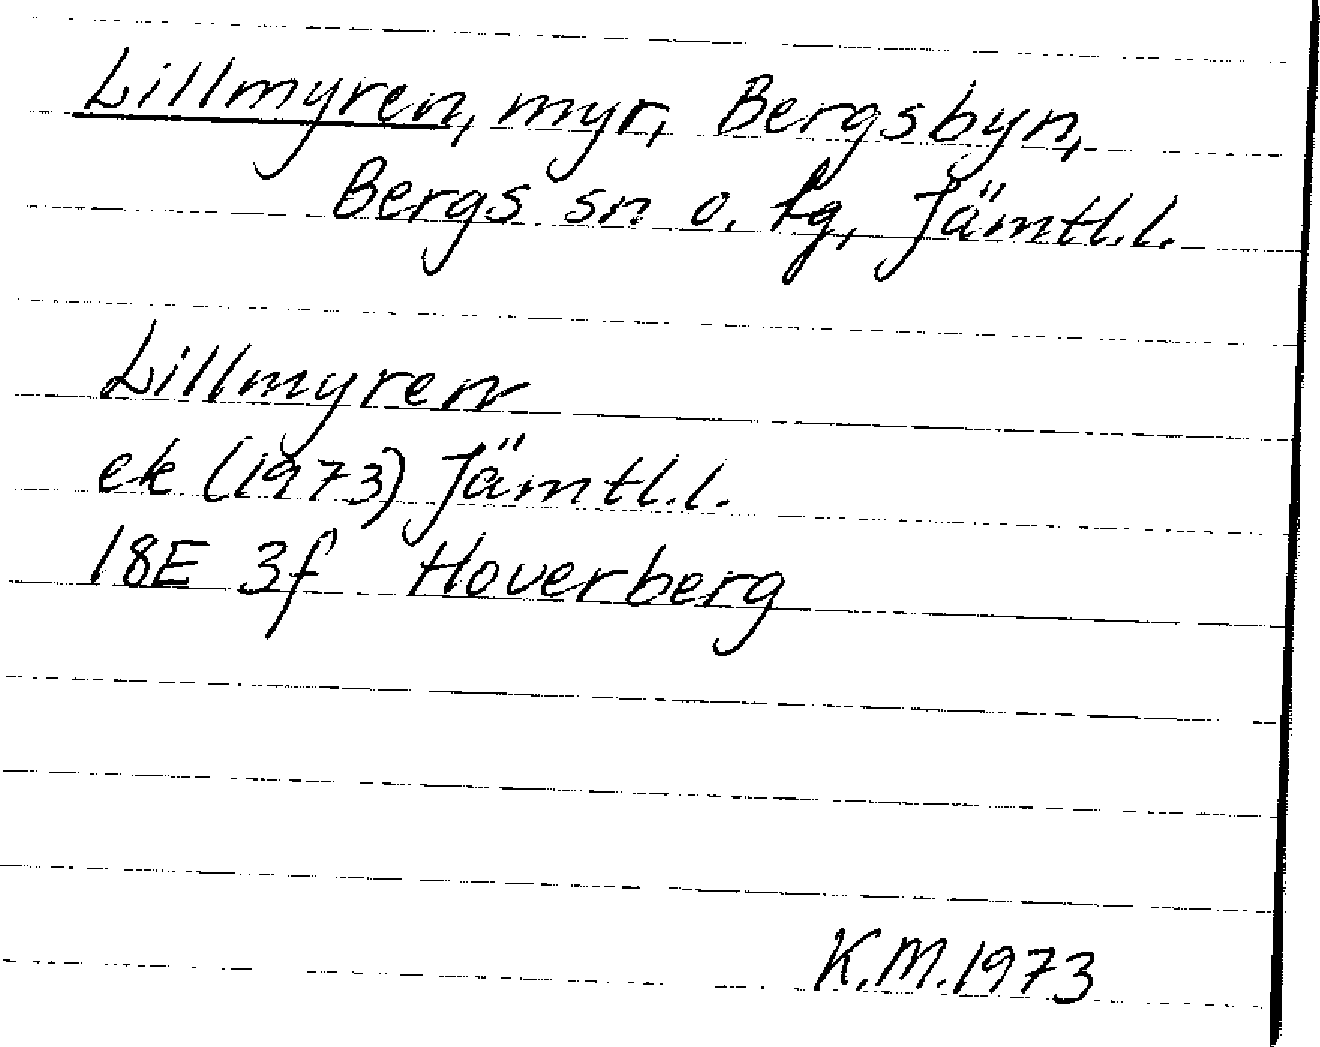 Lillmyren, myr, Bergsbyn,
Bergs sn o. tg, Jämtl.l.
Lillmyren
ek (1973) Jämtl.l.
18E 3f Hoverberg
K.M.1973